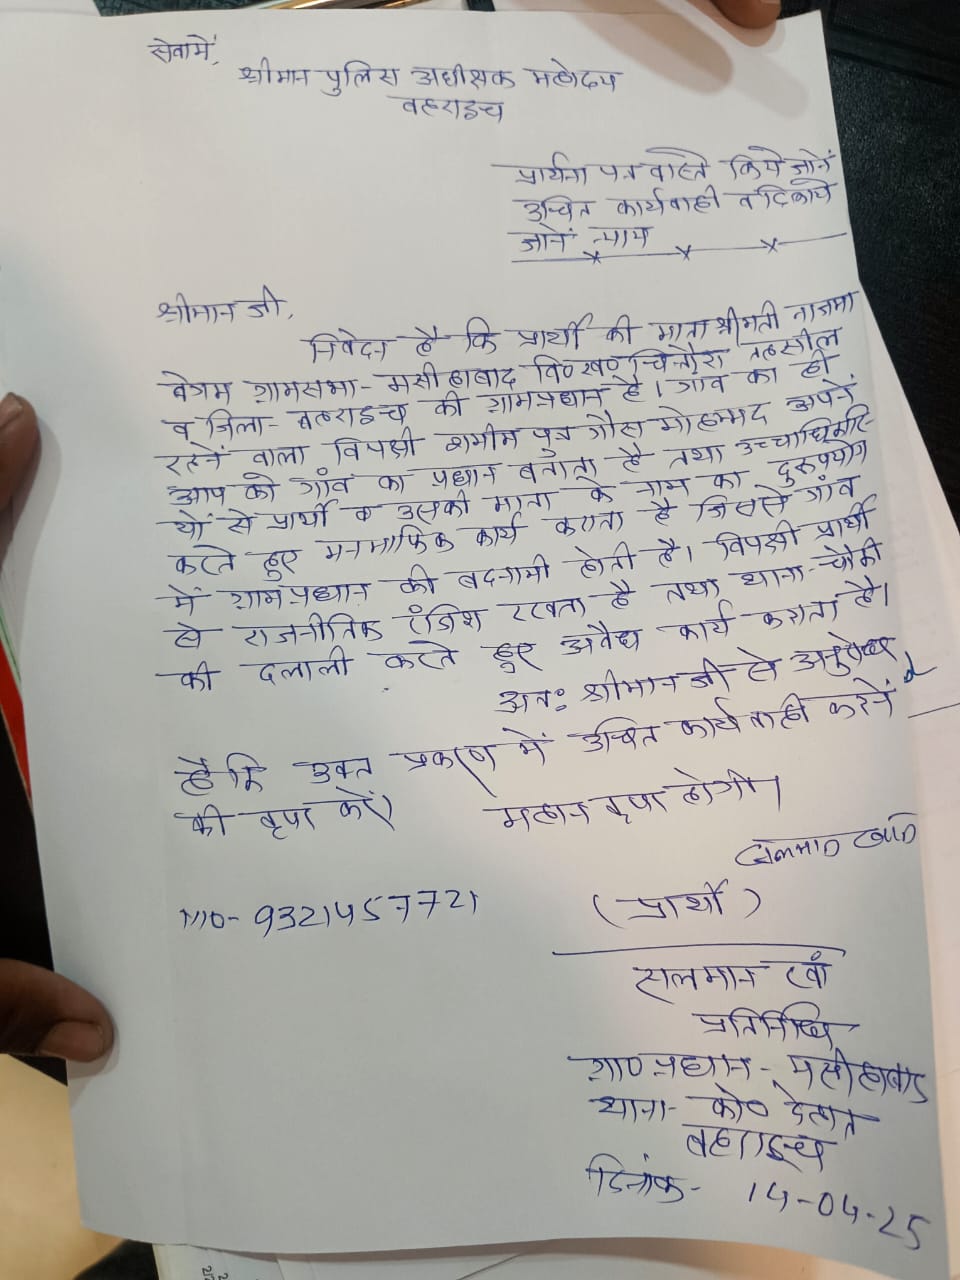 सेवामें,
श्रीमान पुलिस अधीक्षक महोदय
बहराइच
प्रार्थना पत्र वास्ते किये जानें
उचित कार्यवाही व दिलाये
जानें न्याय
श्रीमान जी,
निवेदन है कि प्रार्थी की माता श्रीमती नाजमा
बेगम ग्रामसभा - मसीहाबाद वि०ख० चित्तौरा तहसील
व जिला - बहराइच की ग्रामप्रधान है। गांव का ही
रहनें वाला विपक्षी शमीम पुत्र गौस मोहम्मद अपनें
आप को गाँव का प्रधान बताता है तथा उच्चाधिकारि-
यों से प्रार्थी व उसकी माता के नाम का दुरुपयोग
करते हुए मनमाफिक कार्य कराता है जिससे गाँव
में ग्रामप्रधान की बदनामी होती है। विपक्षी प्रार्थी
से राजनीतिक रंजिश रखता है तथा थाना-चौकी
की दलाली करते हुए अवैध कार्य कराता है।
अतः श्रीमान जी से अनुरोध
है कि उक्त प्रकरण में उचित कार्यवाही करनें
की कृपा करें। महान कृपा होगी।
Salman Khan
MO- 9321457721
(प्रार्थी)
सलमान खाँ
प्रतिनिधि
ग्रा० प्रधान - मसीहाबाद
थाना - को० देहात
बहराइच
दिनांक - 14-04-25